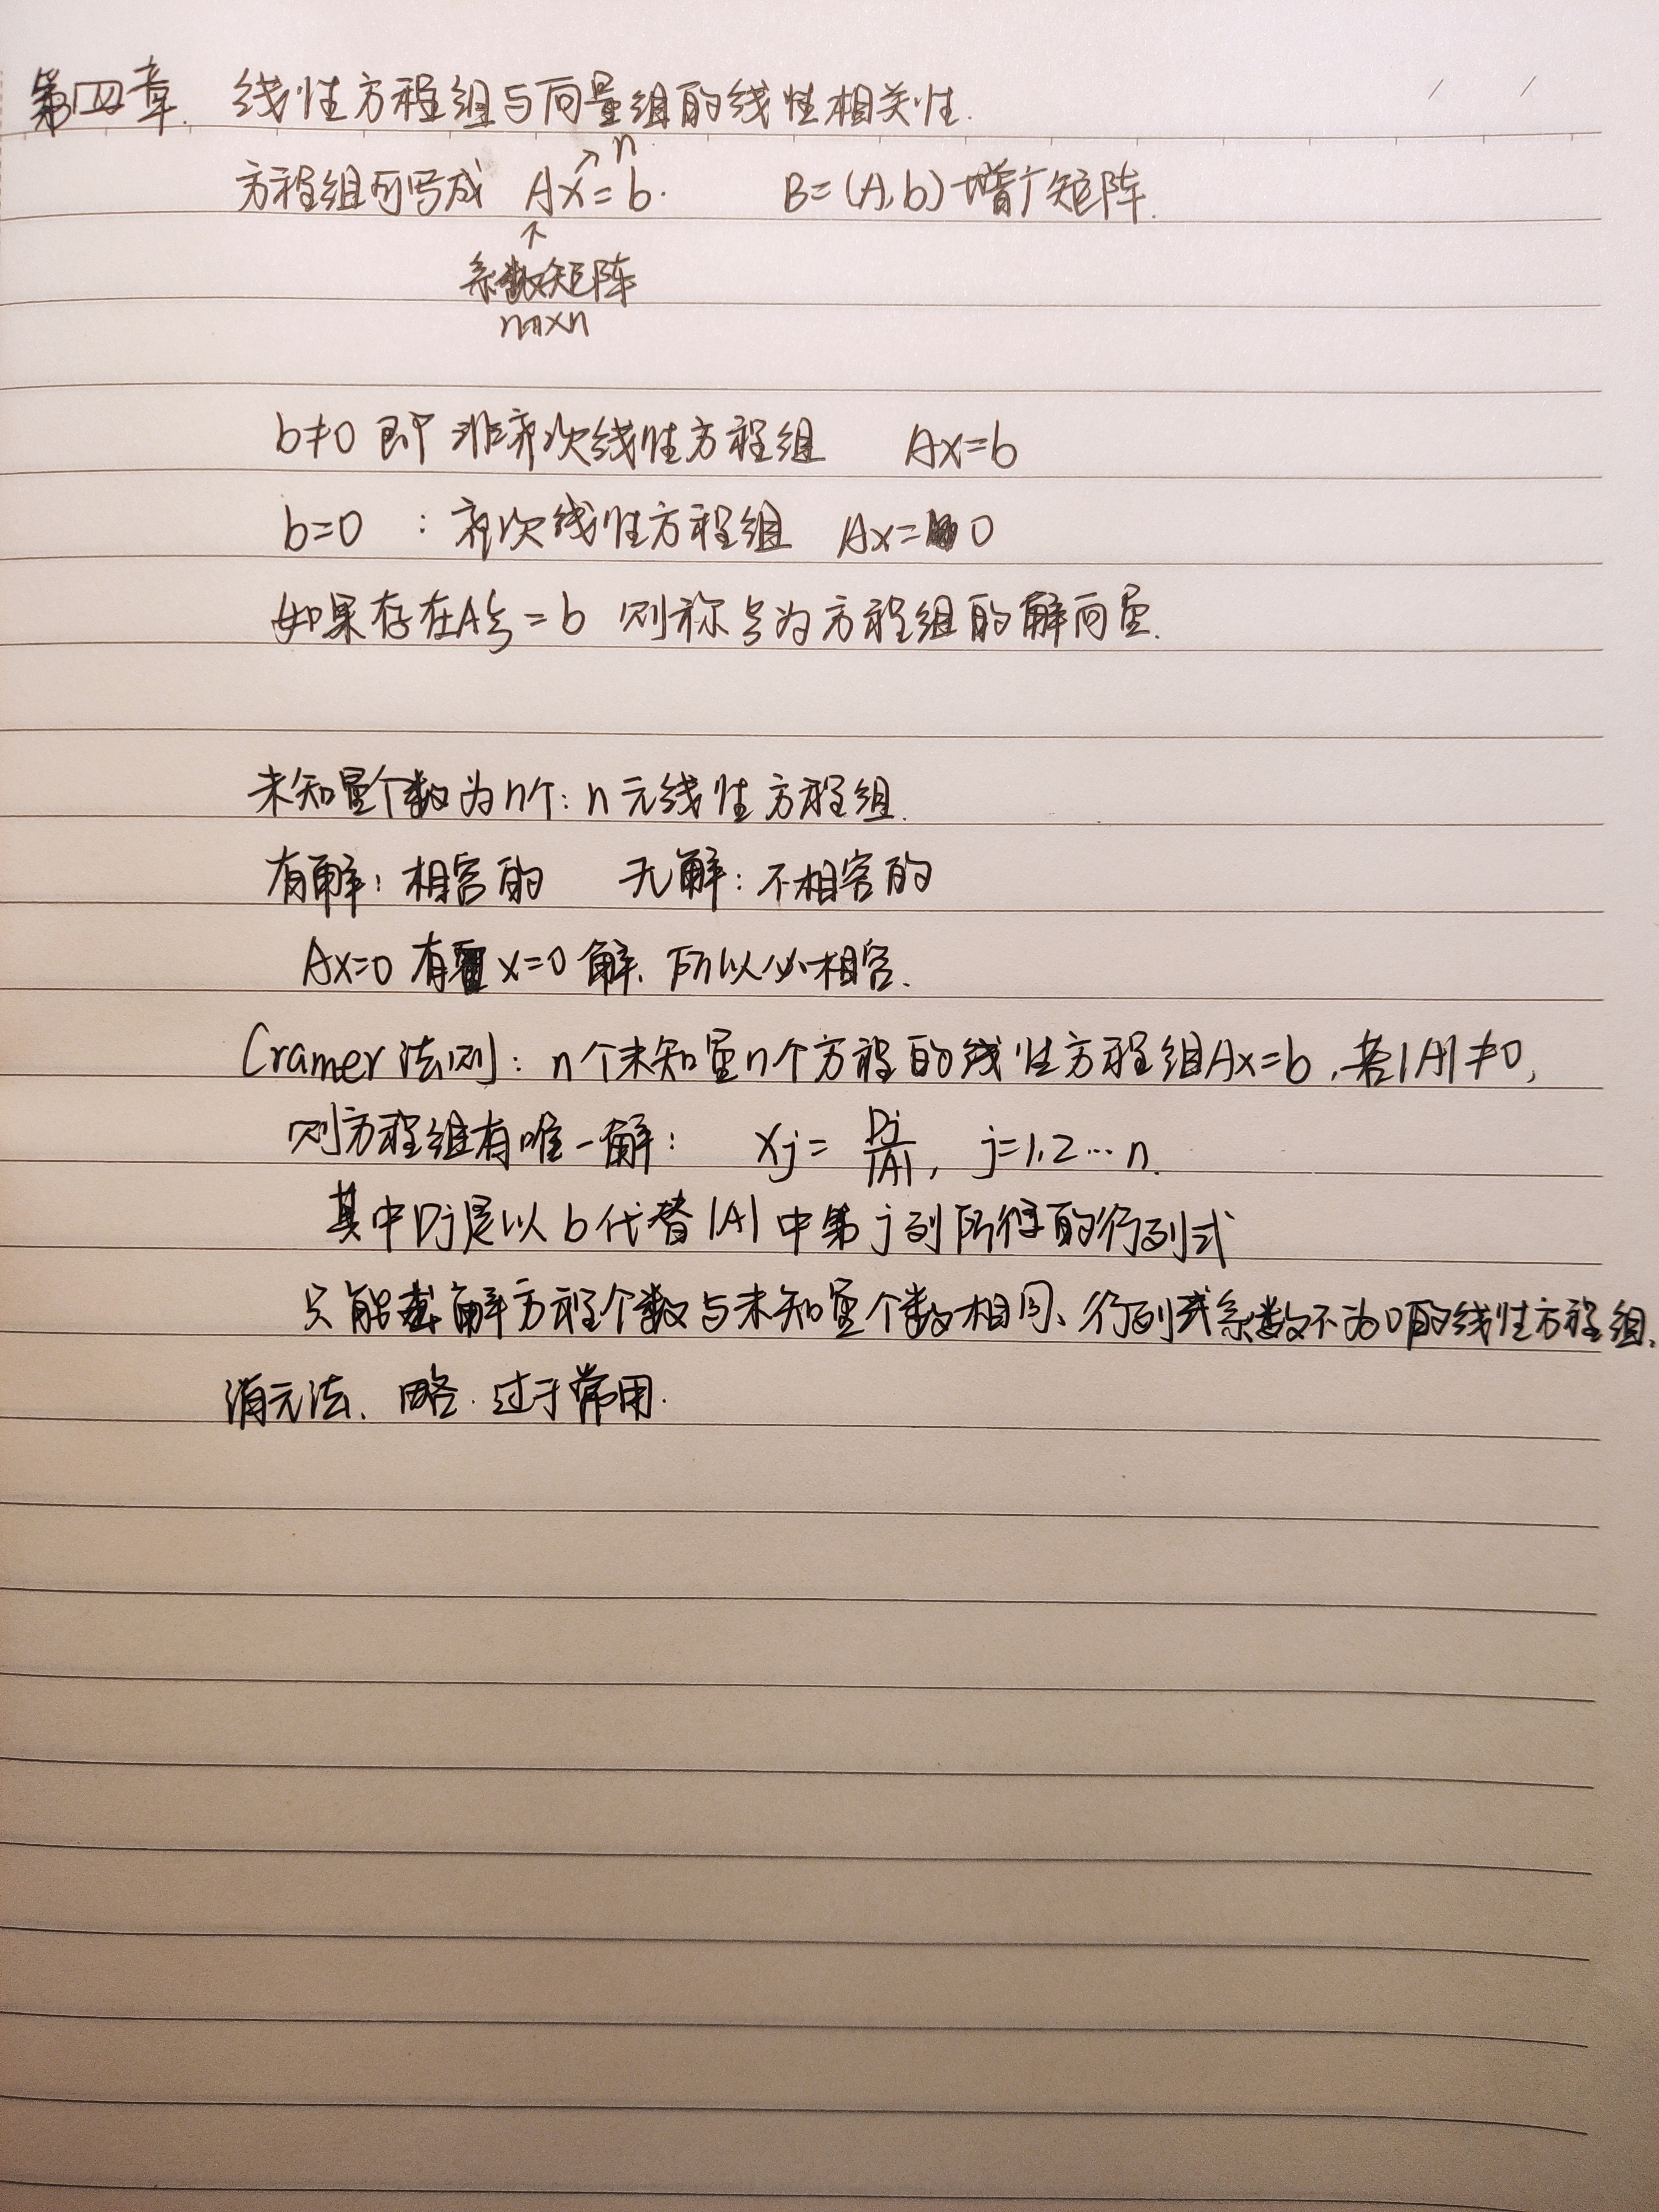 第四章. 线性方程组与向量组的线性相关性.
方程组可写成 Ax=b. B=(A,b) 增广矩阵.
↗ n
↑
系数矩阵
m×n
b≠0 即 非齐次线性方程组 Ax=b
b=0 : 齐次线性方程组 Ax=0
如果存在Aξ=b 则称ξ为方程组的解向量.
未知量个数为n个: n元线性方程组.
有解: 相容的 无解: 不相容的
Ax=0 有 x=0 解, 所以必相容.
Cramer法则: n个未知量n个方程的线性方程组Ax=b, 若|A|≠0,
则方程组有唯一解: xj = Dj/|A|, j=1,2…n.
其中Dj是以b代替|A|中第j列所得的行列式
只能求解方程个数与未知量个数相同、行列式系数不为0的线性方程组.
消元法、略. 过于常用.